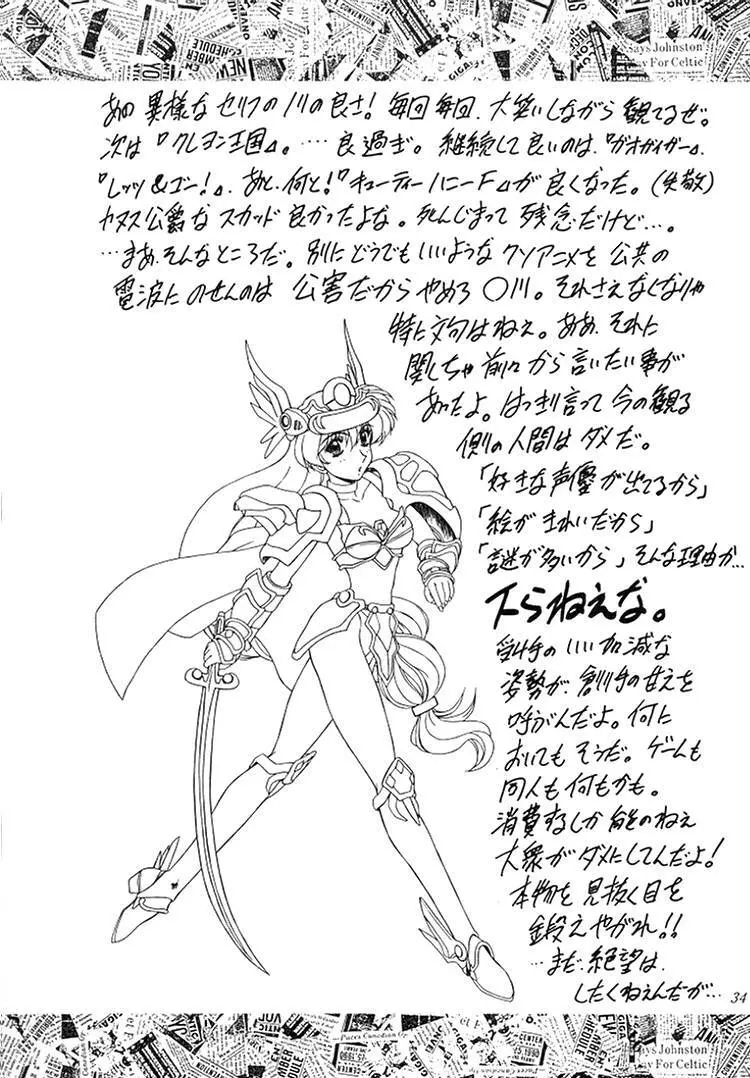 Says Johnston
y For Celtic
あの異様なセリフのノリの良さ!毎回毎回、大笑いしながら観てるぜ。
次は『クレヨン王国』。…良過ぎ。継続して良いのは、『ガオガイガー』、
『レッツ&ゴー!』、あと、何と!『キューティーハニーF』が良くなった。(失敬)
カヌス公爵なスカッド良かったよな。死んじまって残念だけど…。
…まあ、そんなところだ。別にどうでもいいようなクソアニメを公共の
電波にのせんのは公害だからやめろ〇川。それさえなくなりゃ
特に文句はねえ。ああ、それに
関しちゃ前々から言いたい事が
あったよ。はっきり言って今の観る
側の人間はダメだ。
「好きな声優が出てるから」
「絵がきれいだから」
「謎が多いから」そんな理由か…
下らねえな。
受け手のいい加減な
姿勢が、創り手の甘えを
呼がんだよ。何に
おいてもそうだ。ゲームも
同人も何もかも。
消費するしか能のねえ
大衆がダメにしてんだよ!
本物を見抜く目を
鍛えやがれ!!
…まだ、絶望は
したくねえんだが…
34
Says Johnston
y For Celtic